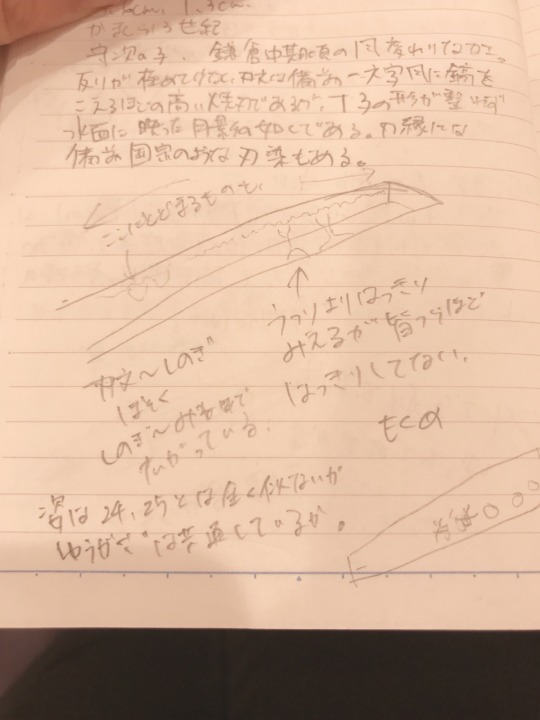 cm, 1.3cm.
かまくら13世紀
守次の子、鎌倉中期頃の風変わりなかざ。
反りが極めて浅く、刃文は備前一文字風に鎬を
こえるほどの高い焼刃であるが、丁子の形が整わず
水面に映った月影の如くである。刃縁には
備前国宗のような刃染もある。
ここにとどまるものも、
うつりよりはっきり
みえるが皆つうほど
はっきりしてない。
刃文〜しのぎ
ほそく
しのぎ〜みねまで
ながっている。
t<α
姿は24, 25とは全く似ないが
ゆうがさは共通しているか。